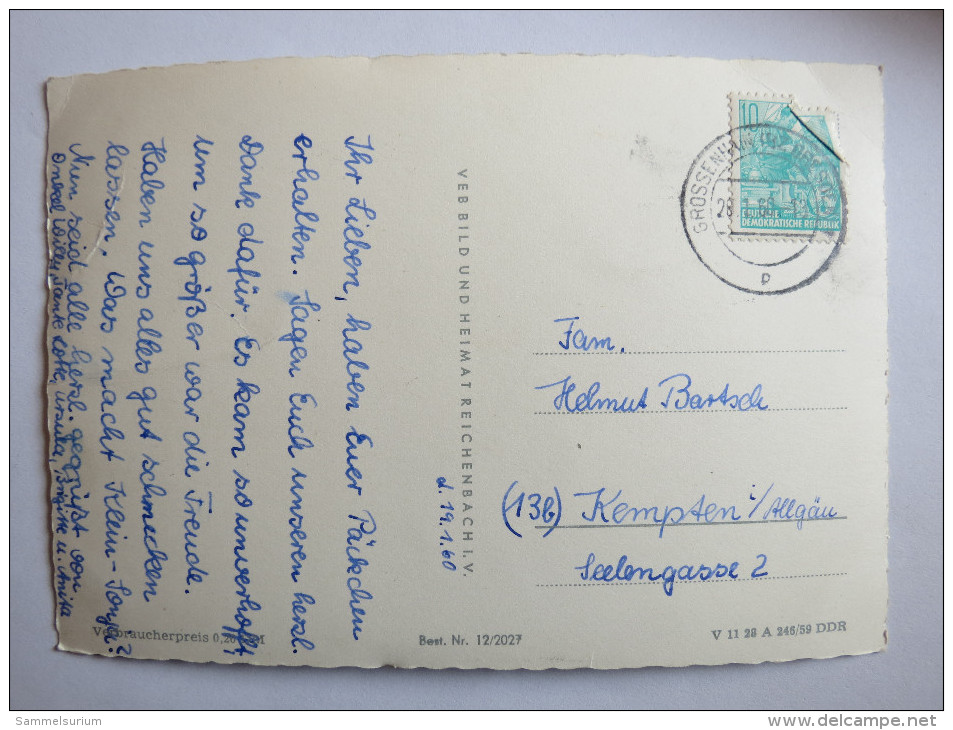 d. 19.1.60
Ihr Lieben, haben Euer Päckchen
erhalten. Sagen Euch unseren herzl.
Dank dafür. Es kam so unverhofft,
um so größer war die Freude.
Haben uns alles gut schmecken
lassen. Was macht Klein-Sonja?
Nun seid alle herzl. gegrüßt von
Onkel Willy, Tante Lotte, Ursula, Brigitte u. Anika
VEB BILD UND HEIMAT REICHENBACH I. V.
10
DEUTSCHE
DEMOKRATISCHE REPUBLIK
GROSSENHAIN
p
Fam.
Helmut Bartsch
(13b) Kempten i/Allgäu
Seelengasse 2
Verbraucherpreis 0,20 DM
Best. Nr. 12/2027
V 11 28 A 245/59 DDR
Sammelsurium
www.delcampe.net